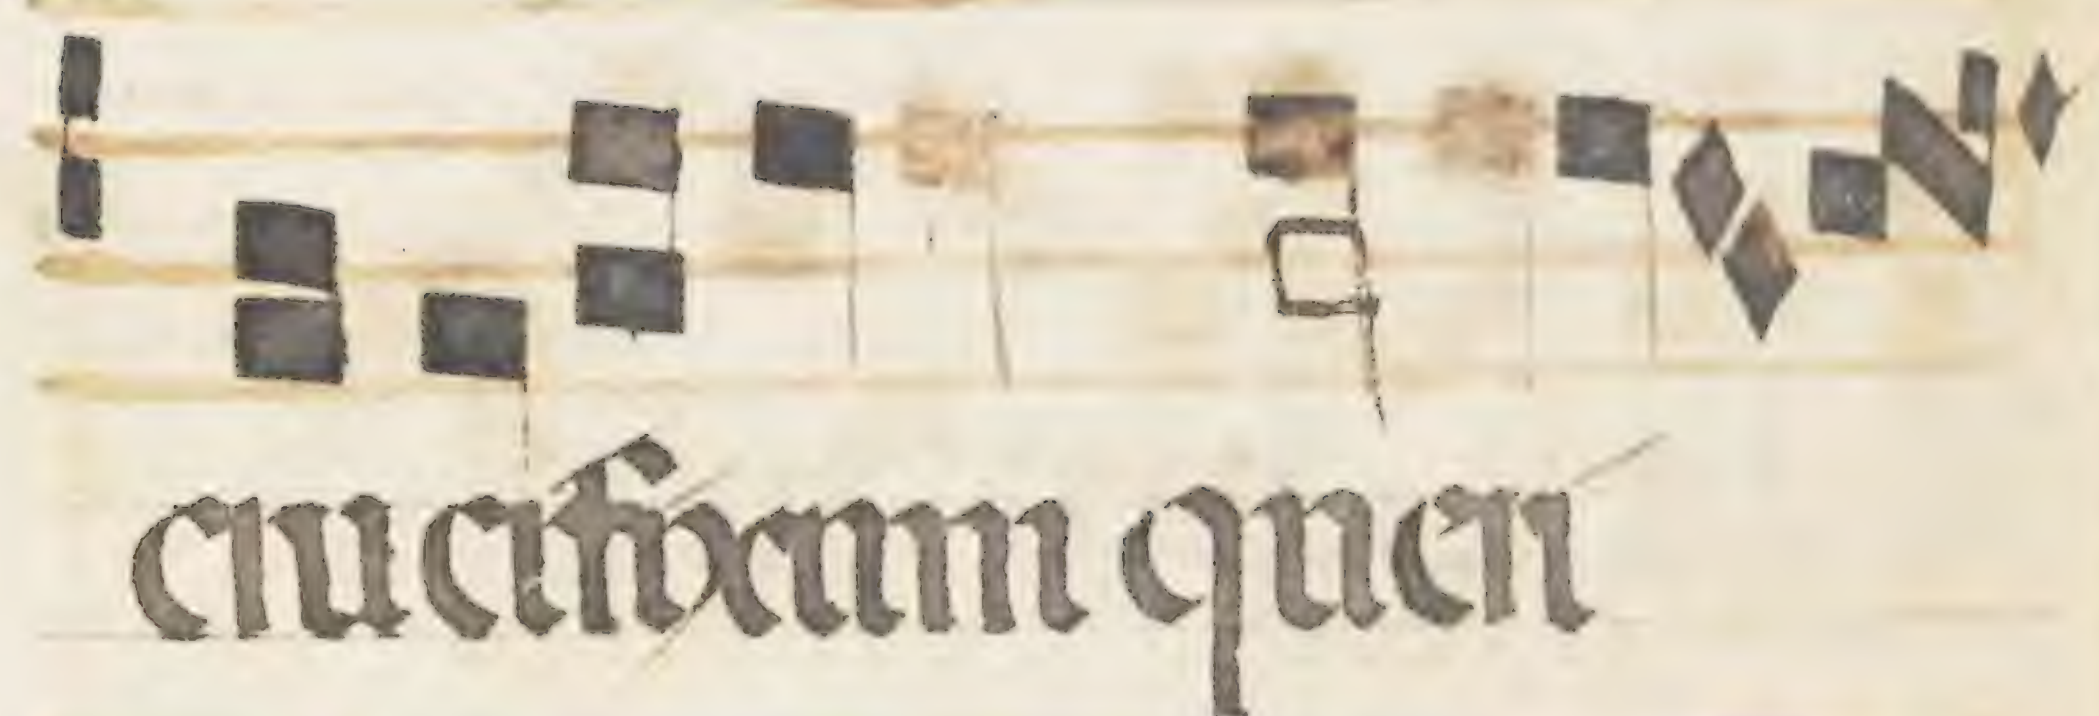 crucifixum queri